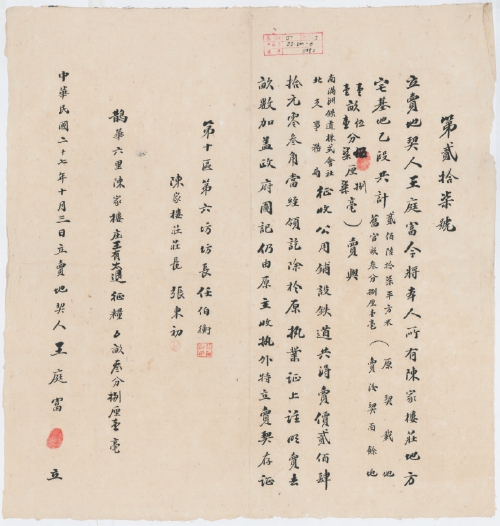 第貳拾柒號
立賣地契人王庭富今將本人所有陳家樓莊地方
宅基地乙段共計
貳佰陸拾柒平方米
舊官畝叁分捌厘壹毫
(原契載地
壹畝伍分
厘捌毫)
(賣後契面餘地
壹畝壹分柒厘柒毫)
賣與
南滿洲鐵道株式會社
北支事務局
征收公用鋪設鐵道共得賣價貳佰肆
拾元零叁角當經領訖除於原執業証上註明賣去
畝數加蓋政府圖記仍由原主收執外特立賣契存証
第十區第六坊坊長任伯衡
陳家樓莊莊長張東初
鵲華六里陳家樓庄王有大 征糧 畝叁分捌厘壹毫
中華民國二十七年十月三日立賣地契人王庭富 立